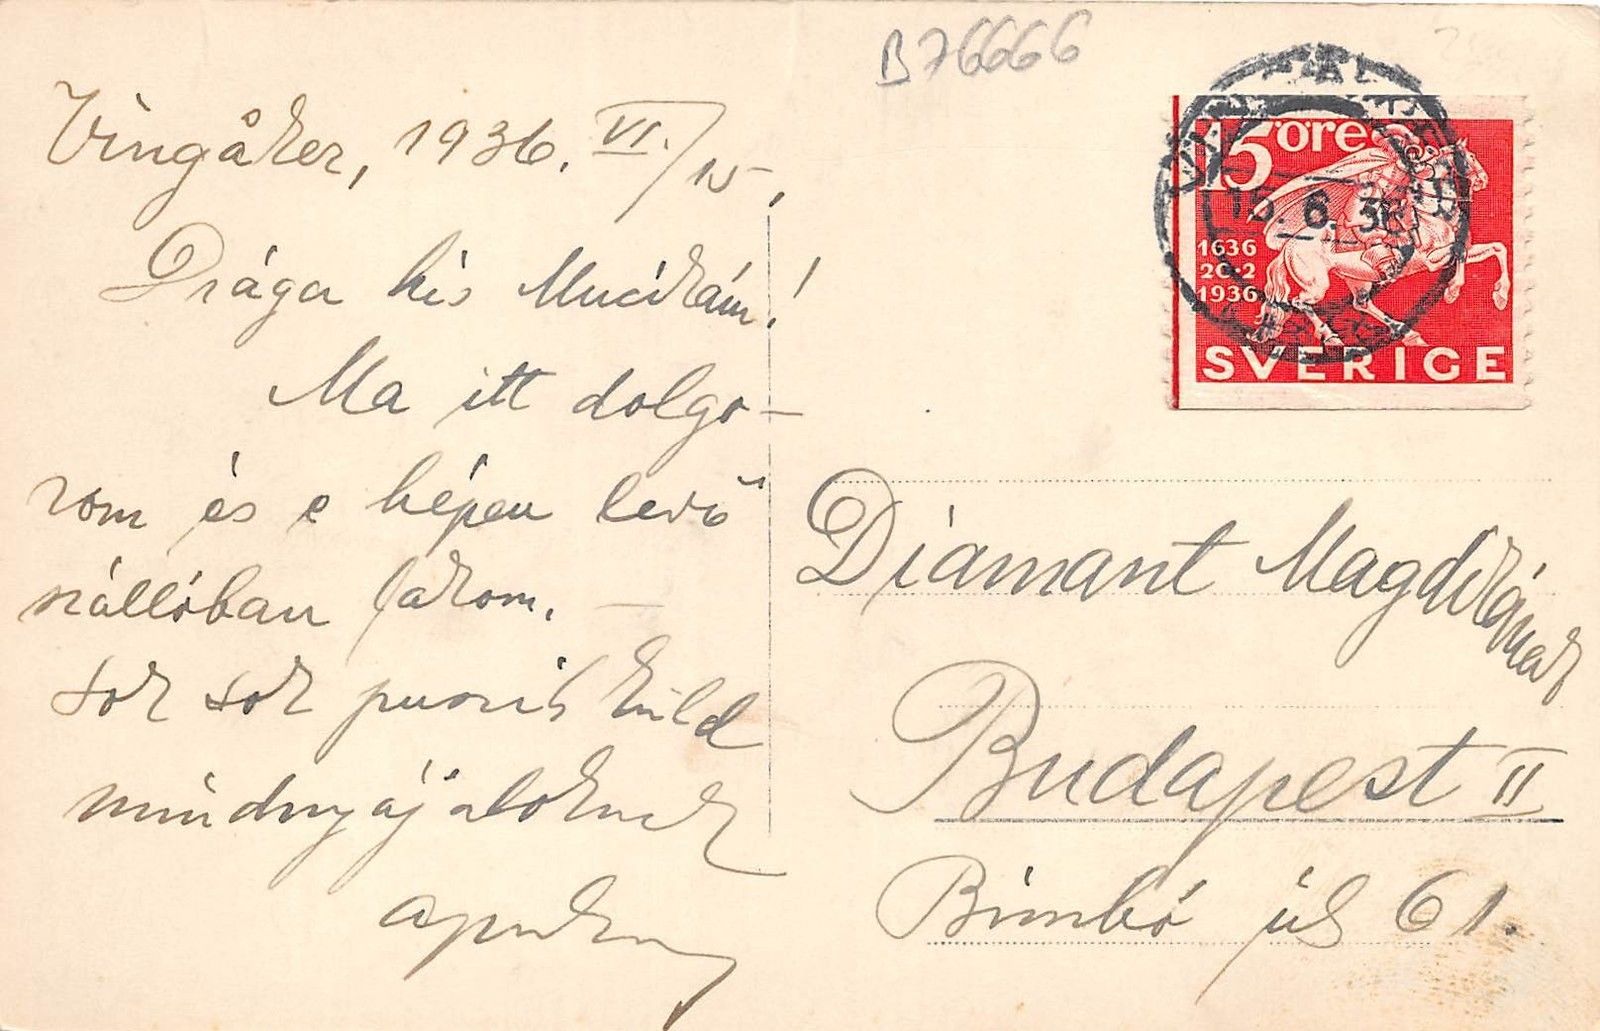 B76666
Vingåker, 1936. VI./15.
Drága kis Mucikám!
Ma itt dolgo-
zom és e képen levő
szállóban lakom. —
Sok sok puszit küld
mindnyájatoknak
apuka
15 öre
1636
20-2
1936
SVERIGE
15. 6. 36
Diamant Magdikának
Budapest II
Bimbó út 61.